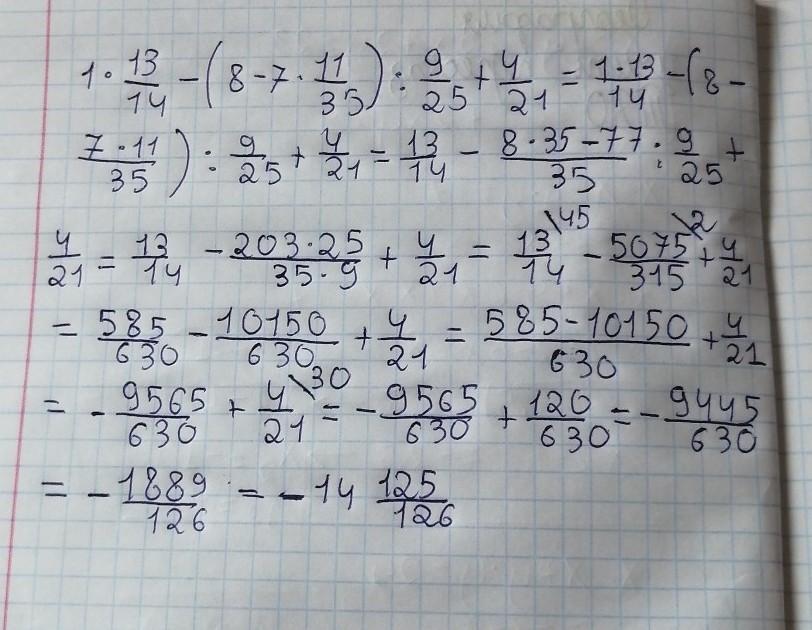 1 · 13/14 - (8 - 7 · 11/35) : 9/25 + 4/21 = 1·13/14 - (8 -
7·11/35) : 9/25 + 4/21 = 13/14 - 8·35-77/35 : 9/25 +
4/21 = 13/14 - 203·25/35·9 + 4/21 = 13/14 \45 - 5075/315 \2 + 4/21
= 585/630 - 10150/630 + 4/21 = 585-10150/630 + 4/21
= - 9565/630 + 4/21 \30 = - 9565/630 + 120/630 = - 9445/630
= - 1889/126 = - 14 125/126